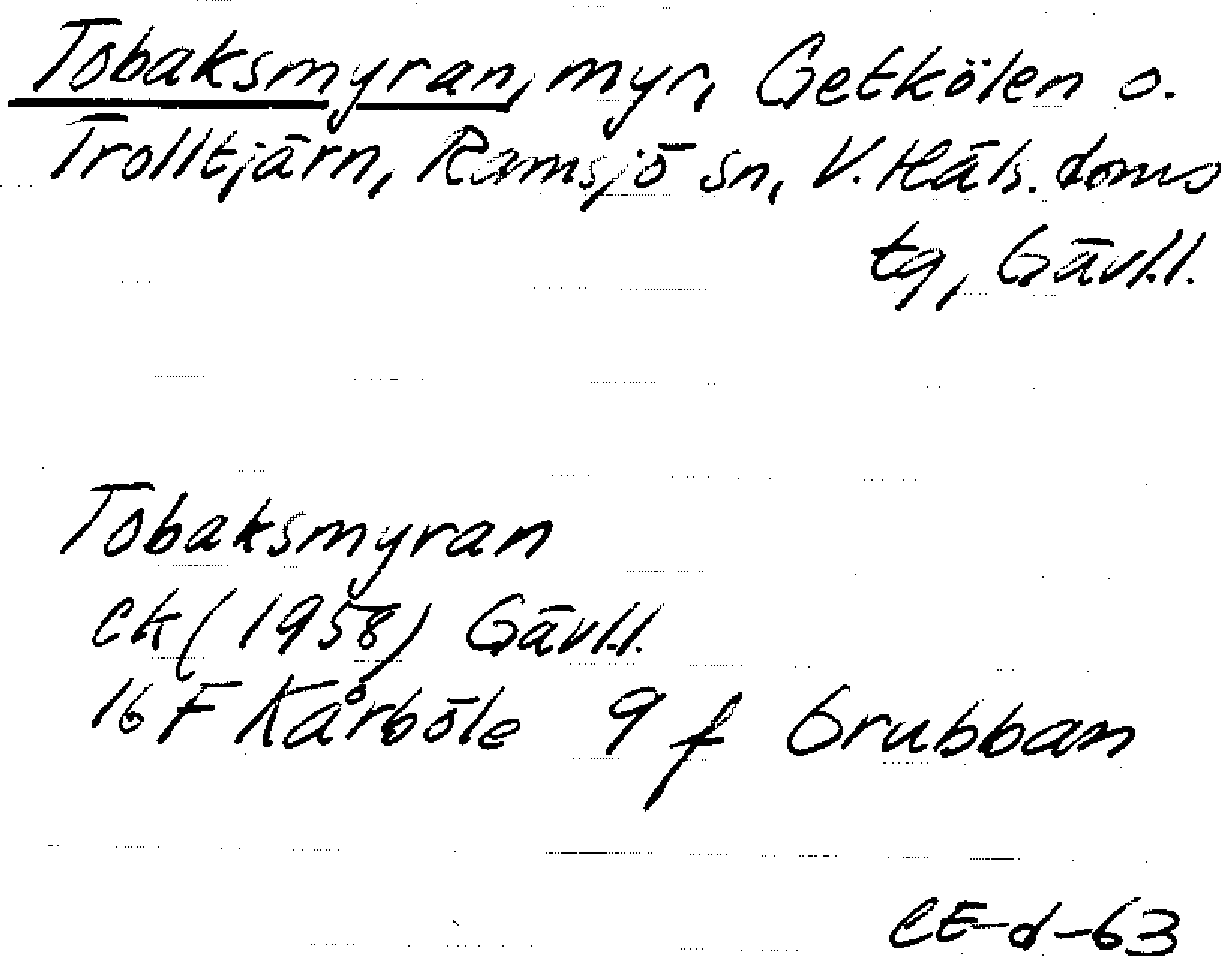 Tobaksmyran, myr, Getkölen o.
Trolltjärn, Ramsjö sn, V. Häls. doms
tg, Gävl.l.
Tobaksmyran
ek (1958) Gävl.l.
16 F Kårböle 9 f Grubban
CE-d-63